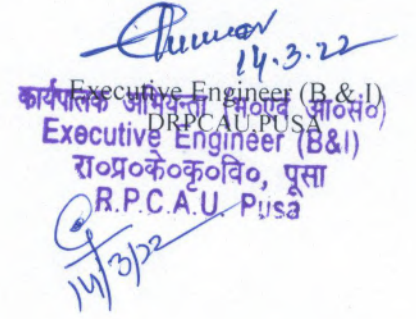 14.3.22
Executive Engineer (B & I)
DRPCAU.PUSA
कार्यपालक अभियन्ता (भ०एवं आ०सं०)
Executive Engineer (B&I)
रा०प्र०के०कृ०वि०, पूसा
R.P.C.A.U. Pusa
14/3/22